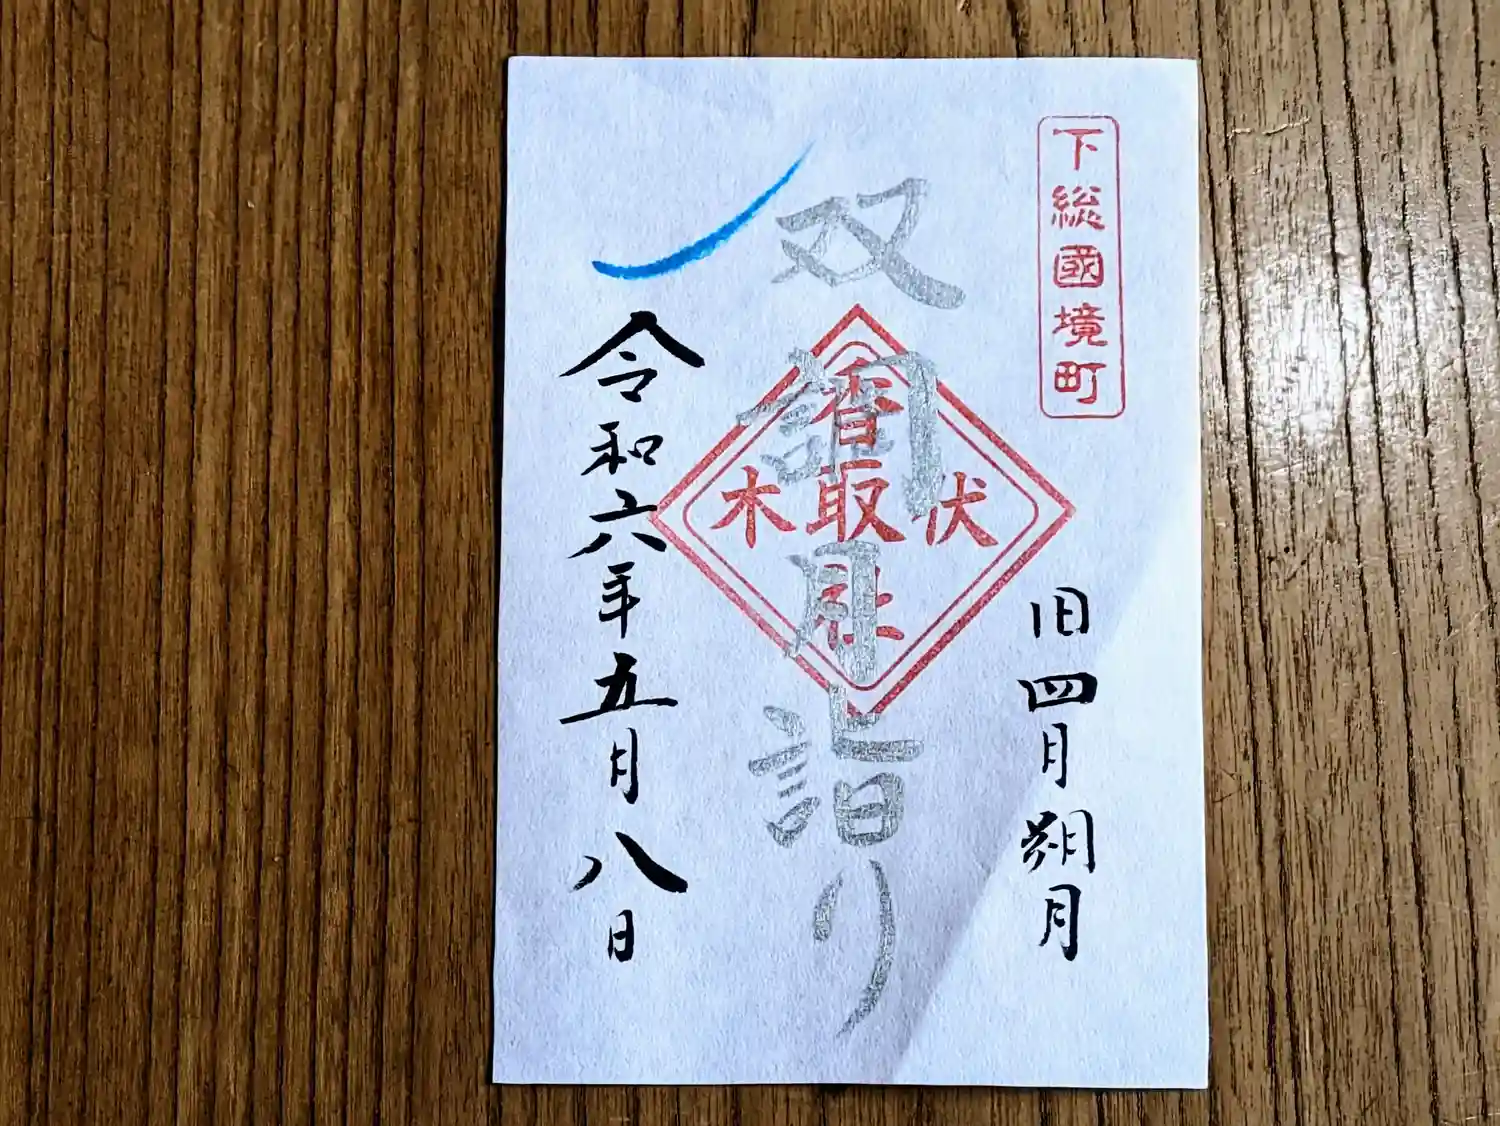 下総國境町
旧四月朔月
双朔月詣り
伏木
香取社
令和六年五月八日